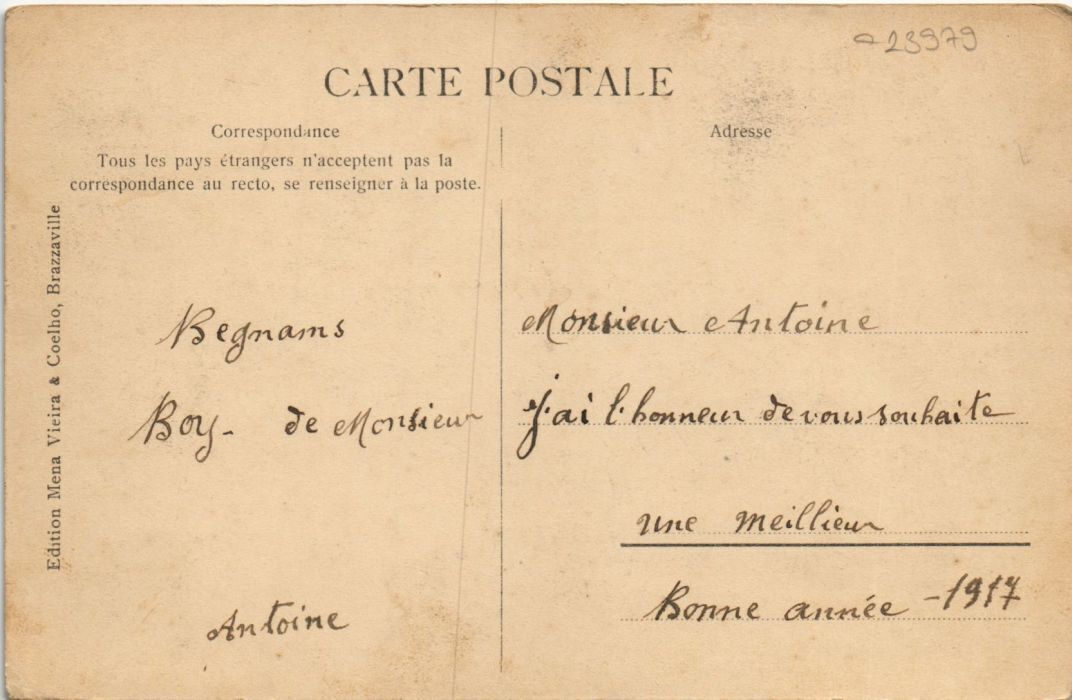 23979
CARTE POSTALE
Correspondance
Tous les pays étrangers n'acceptent pas la
correspondance au recto, se renseigner à la poste.
Edition Mena Vieira & Coelho, Brazzaville
Begnams
Boy- de Monsieur
Antoine
Adresse
Monsieur Antoine
J'ai l'honneur de vous souhaite
une meillieur
Bonne année -1917